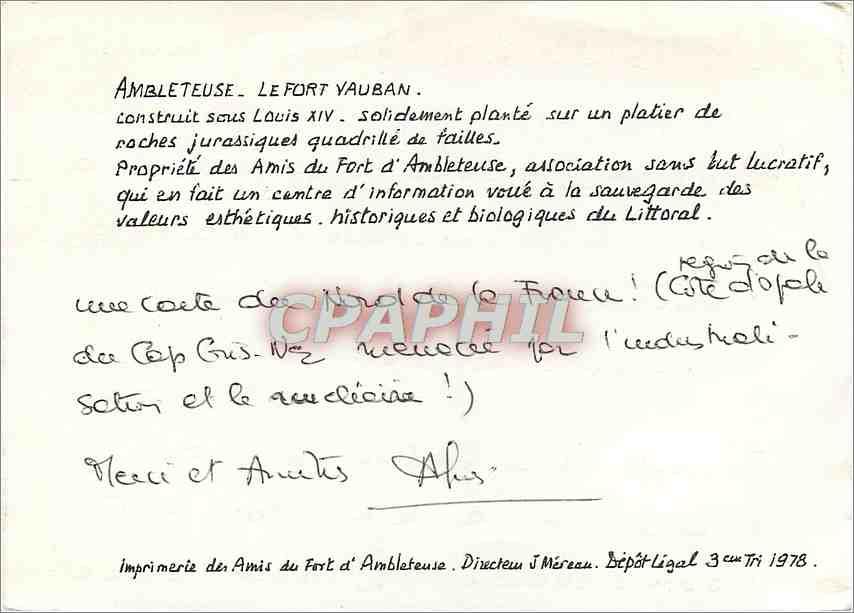 AMBLETEUSE - LE FORT VAUBAN.
construit sous Louis XIV - solidement planté sur un platier de
roches jurassiques quadrillé de failles.
Propriété des Amis du Fort d'Ambleteuse, association sans but lucratif,
qui en fait un centre d'information voué à la sauvegarde des
valeurs esthétiques. historiques et biologiques du Littoral.
région de la
une carte du Nord de la France ! (Côte d'Opale
CPAPHIL
du Cap Gris-Nez menacée par l'industriali-
sation et le nucléaire !)
Merci et Amitiés
Imprimerie des Amis du Fort d'Ambleteuse. Directeur J Méreau. Dépôt Légal 3eme Tri 1978.